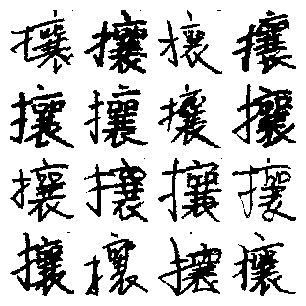 攘攘攘攘
攘攘攘攘
攘攘攘攘
攘攘攘攘